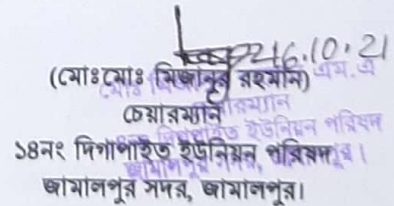 16.10.21
(মোঃ মোঃ মিজানুর রহমান) এম.এ
চেয়ারম্যান
১৪নং দিগপাইত ইউনিয়ন পরিষদ
জামালপুর সদর, জামালপুর।